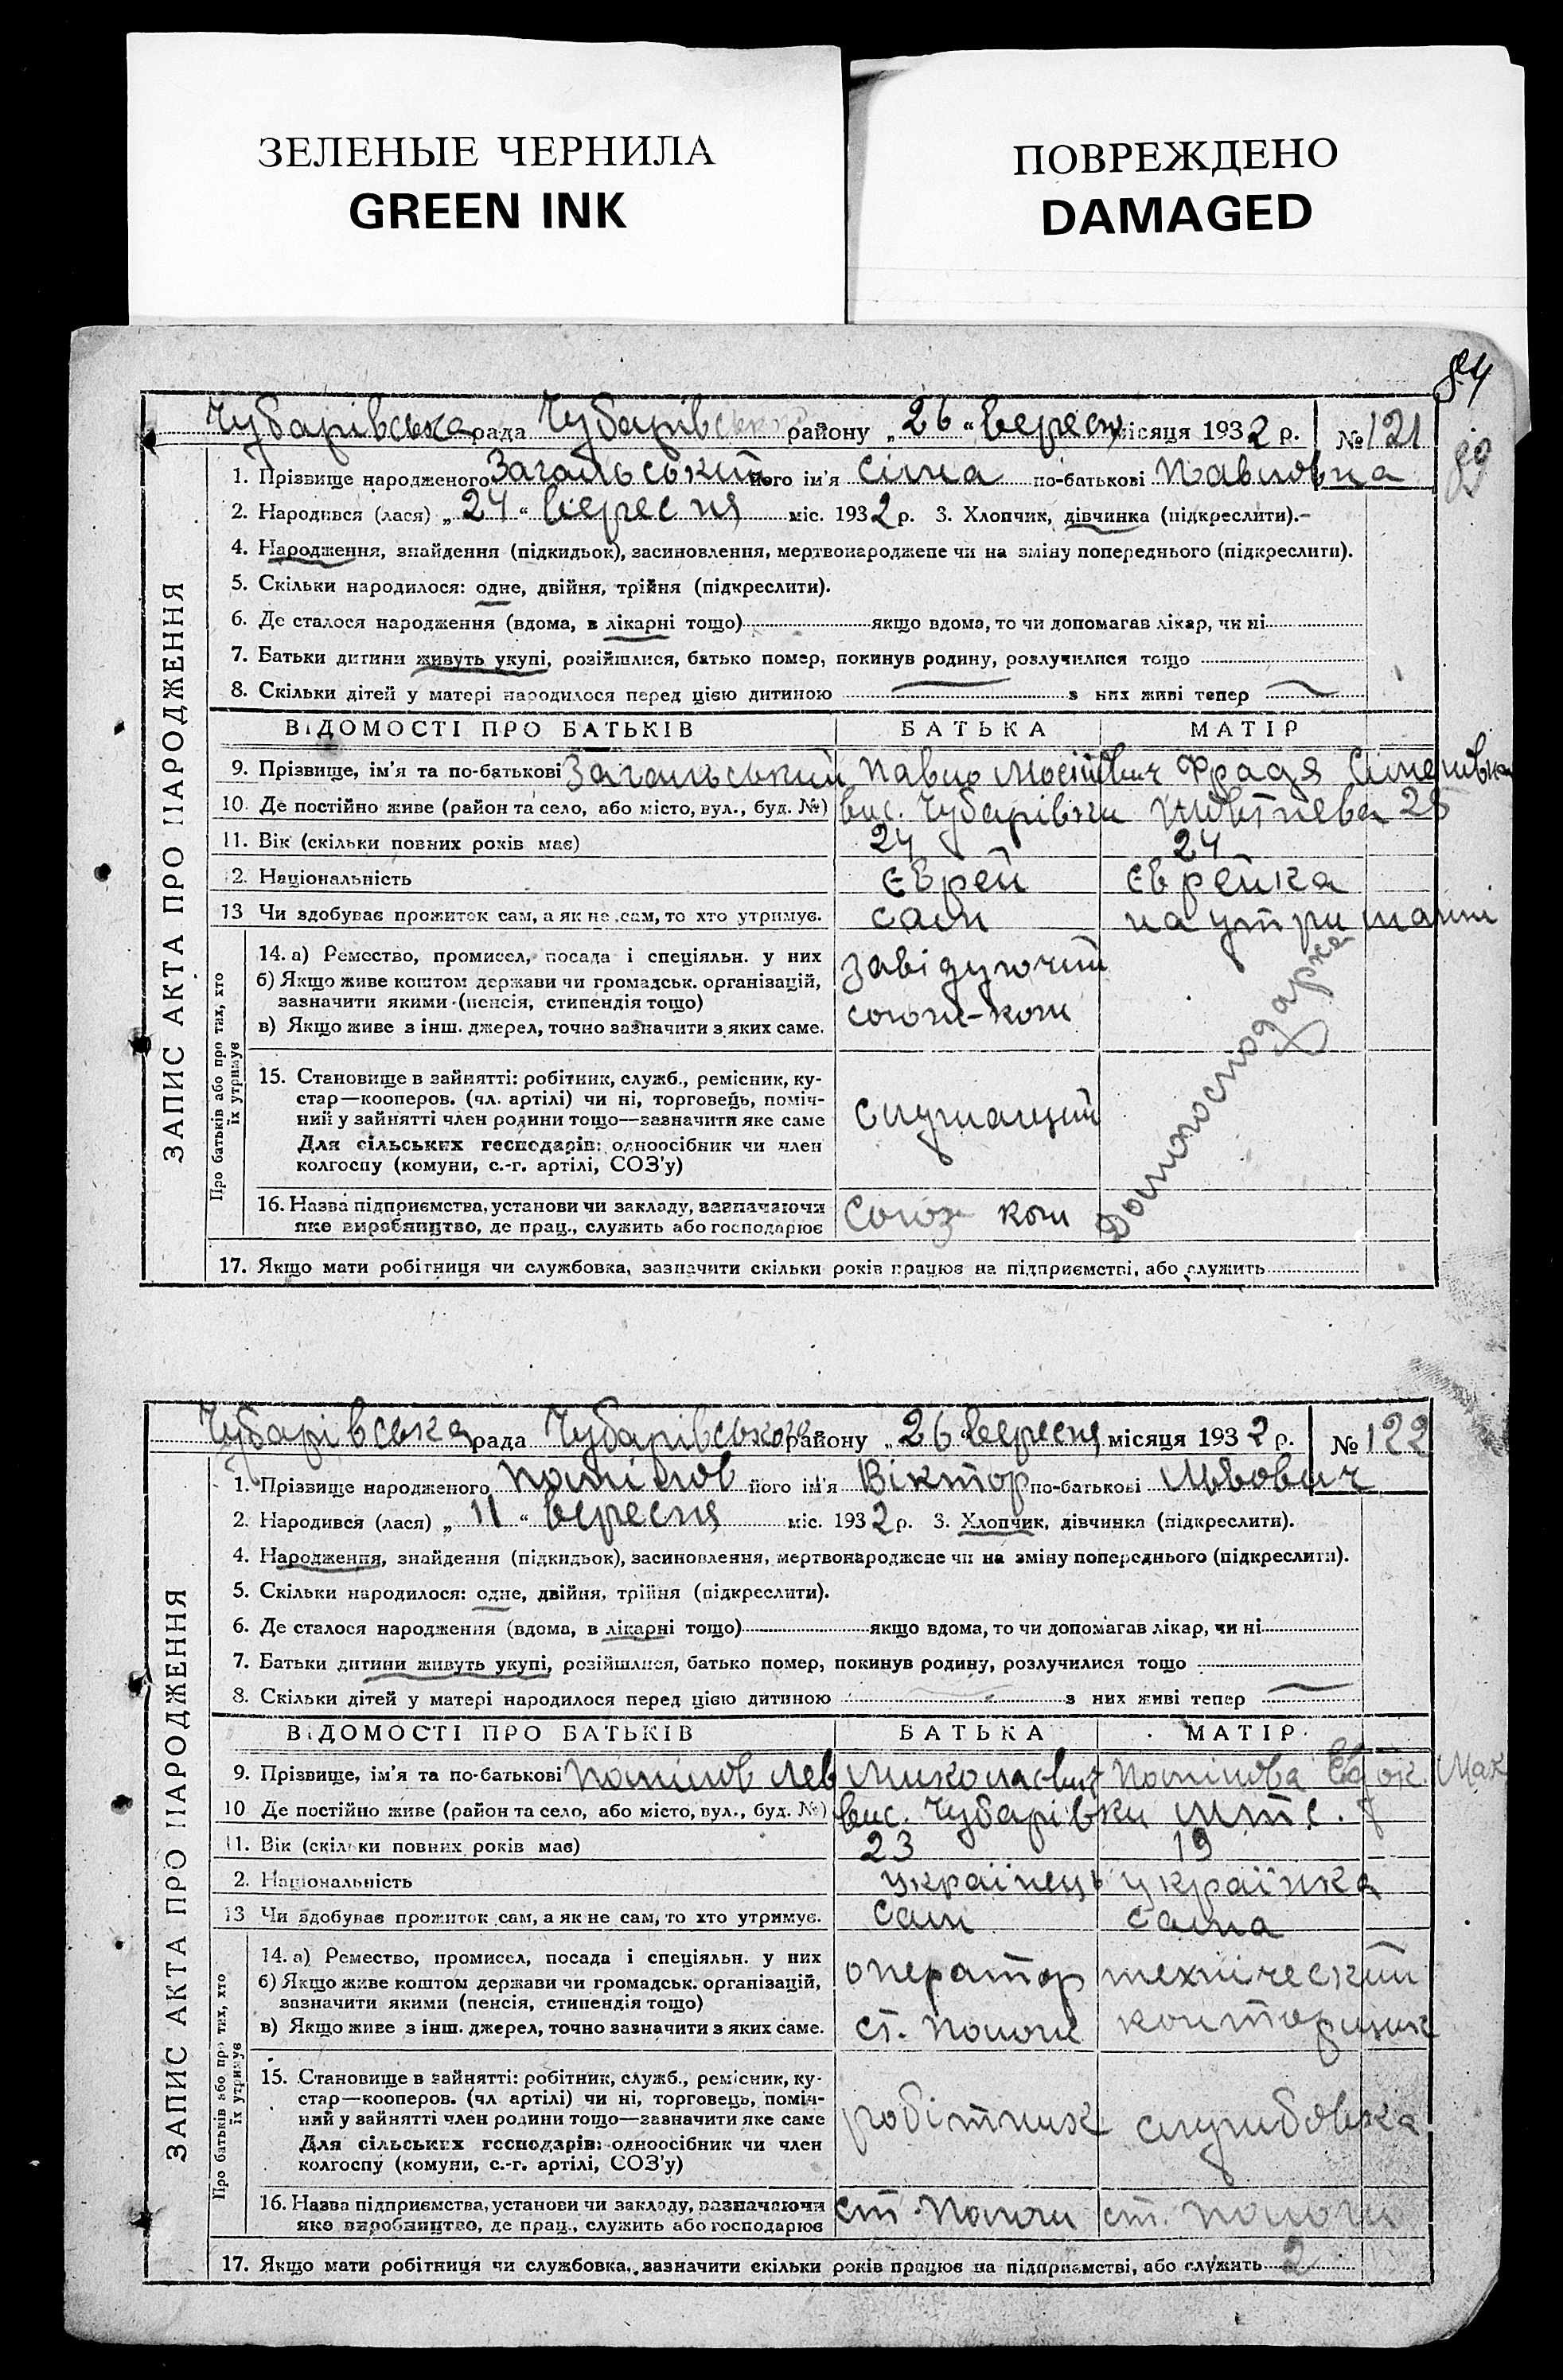 ЗЕЛЕНЫЕ ЧЕРНИЛА
GREEN INK
ПОВРЕЖДЕНО
DAMAGED
84
89
ЗАПИС АКТА ПРО НАРОДЖЕННЯ
Чубарівська рада Чубарівського району „26“ вересня місяця 1932 р. № 121
1. Прізвище народженого Загальський його ім'я Сіма по-батькові Павловна
2. Народився (лася) „24“ вересня міс. 1932 р. 3. Хлопчик, дівчинка (підкреслити).
4. Народження, знайдення (підкидьок), засиновлення, мертвонароджене чи на зміну попереднього (підкреслити).
5. Скільки народилося: одне, двійня, трійня (підкреслити).
6. Де сталося народження (вдома, в лікарні тощо) якщо вдома, то чи допомагав лікар, чи ні
7. Батьки дитини живуть укупі, розійшлися, батько помер, покинув родину, розлучилися тощо
8. Скільки дітей у матері народилося перед цією дитиною з них живі тепер
ВІДОМОСТІ ПРО БАТЬКІВ БАТЬКА МАТІР
9. Прізвище, ім'я та по-батькові Загальський Павло Фрадя
10. Де постійно живе (район та село, або місто, вул., буд. №) вис. Чубарівки Жовтнева 25
11. Вік (скільки повних років має) 24 24
12. Національність Єврей Єврейка
13 Чи здобуває прожиток сам, а як не сам, то хто утримує. сам на утриманні
Про батьків або про тих, хто їх утримує
14. а) Ремество, промисел, посада і спеціяльн. у них завідуючий
б) Якщо живе коштом держави чи громадськ. організацій,
зазначити якими (пенсія, стипендія тощо)
в) Якщо живе з інш. джерел, точно зазначити з яких саме.
Домогосподарка
15. Становище в зайнятті: робітник, служб., ремісник, ку-
стар—кооперов. (чл. артілі) чи ні, торговець, поміч-
ний у зайнятті член родини тощо—зазначити яке саме
Для сільських господарів: одноосібник чи член
колгоспу (комуни, с.-г. артілі, СОЗ'у)
служащий
16. Назва підприємства, установи чи закладу, зазначаючи
яке виробництво, де прац., служить або господарює
Союз
17. Якщо мати робітниця чи службовка, зазначити скільки років працює на підприємстві, або служить
ЗАПИС АКТА ПРО НАРОДЖЕННЯ
Чубарівська рада Чубарівського району „26“ вересня місяця 1932 р. № 122
1. Прізвище народженого його ім'я Віктор по-батькові Львович
2. Народився (лася) „11“ вересня міс. 1932 р. 3. Хлопчик, дівчинка (підкреслити).
4. Народження, знайдення (підкидьок), засиновлення, мертвонароджене чи на зміну попереднього (підкреслити).
5. Скільки народилося: одне, двійня, трійня (підкреслити).
6. Де сталося народження (вдома, в лікарні тощо) якщо вдома, то чи допомагав лікар, чи ні
7. Батьки дитини живуть укупі, розійшлися, батько помер, покинув родину, розлучилися тощо
8. Скільки дітей у матері народилося перед цією дитиною з них живі тепер
ВІДОМОСТІ ПРО БАТЬКІВ БАТЬКА МАТІР
9. Прізвище, ім'я та по-батькові Лев Миколаєвич
10 Де постійно живе (район та село, або місто, вул., буд. №) вис. Чубарівки
11. Вік (скільки повних років має) 23 19
2. Національність українець українка
13 Чи здобуває прожиток сам, а як не сам, то хто утримує. сам сама
Про батьків або про тих, хто їх утримує
14. а) Ремество, промисел, посада і спеціяльн. у них оператор технический
б) Якщо живе коштом держави чи громадськ. організацій,
зазначити якими (пенсія, стипендія тощо)
в) Якщо живе з інш. джерел, точно зазначити з яких саме. ст. Пологи конторщик
15. Становище в зайнятті: робітник, служб., ремісник, ку-
стар—кооперов. (чл артілі) чи ні, торговець, поміч-
ний у зайнятті член родини тощо—зазначити яке саме
Для сільських господарів: одноосібник чи член
колгоспу (комуни, с.-г. артілі, СОЗ'у)
робітник службовка
16. Назва підприємства, установи чи закладу, зазначаючи
яке виробництво, де прац., служить або господарює
ст. Пологи ст. Пологи
17. Якщо мати робітниця чи службовка, зазначити скільки років працює на підприємстві, або служить 2